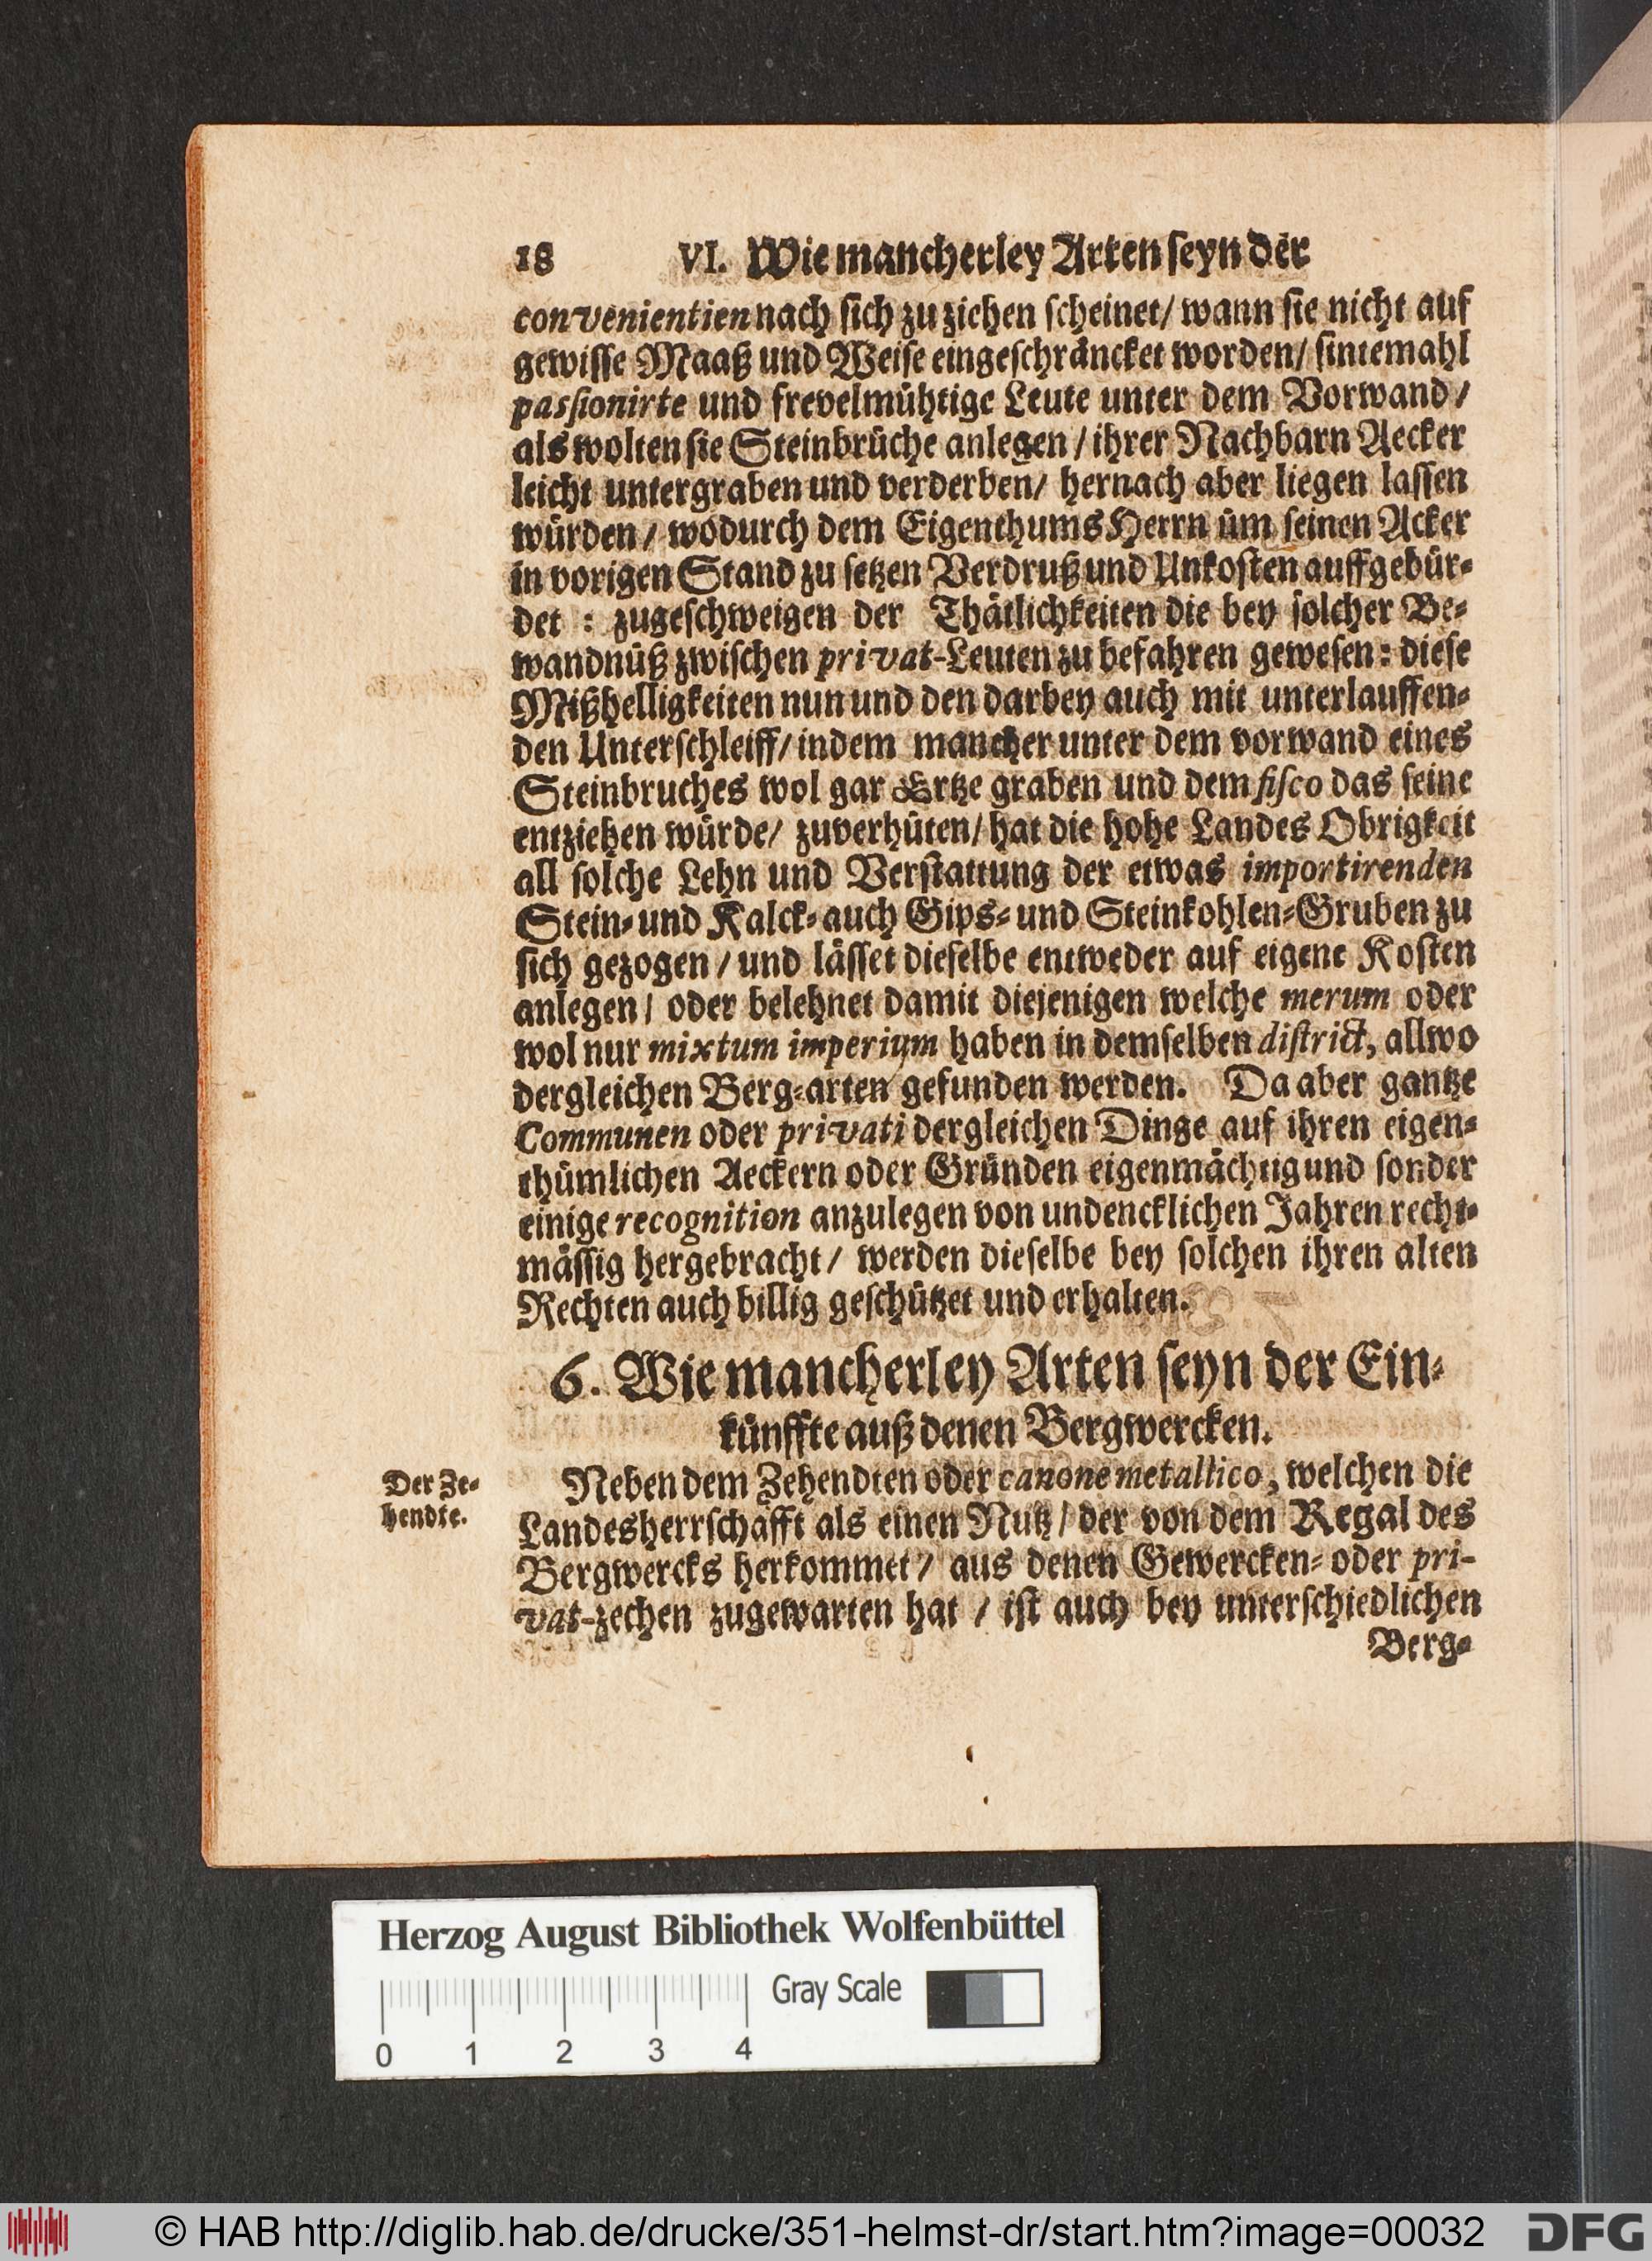 18 VI. Wie mancherley Arten seyn der
convenientien nach sich zu ziehen scheinet/ wann sie nicht auf
gewisse Maaß und Weise eingeschräncket worden/ sintemahl
passionirte und frevelmühtige Leute unter dem Vorwand/
als wolten sie Steinbrüche anlegen / ihrer Nachbarn Aecker
leicht untergraben und verderben/ hernach aber liegen lassen
würden/ wodurch dem Eigenthums Herrn üm seinen Acker
in vorigen Stand zu setzen Verdruß und Unkosten auffgebür-
det : zugeschweigen der Thätlichkeiten die bey solcher Be-
wandnüß zwischen privat-Leuten zu befahren gewesen: diese
Mißhelligkeiten nun und den darbey auch mit unterlauffen-
den Unterschleiff/ indem mancher unter dem vorwand eines
Steinbruches wol gar Ertze graben und dem fisco das seine
entziehen würde/ zuverhüten/ hat die hohe Landes Obrigkeit
all solche Lehn und Verstattung der etwas importirenden
Stein- und Kalck- auch Gips- und Steinkohlen-Gruben zu
sich gezogen / und lässet dieselbe entweder auf eigene Kosten
anlegen/ oder belehnet damit diejenigen welche merum oder
wol nur mixtum imperium haben in demselben district, allwo
dergleichen Berg-arten gefunden werden. Da aber gantze
Communen oder privati dergleichen Dinge auf ihren eigen-
thümlichen Aeckern oder Gründen eigenmächtig und sonder
einige recognition anzulegen von undencklichen Jahren recht-
mässig hergebracht/ werden dieselbe bey solchen ihren alten
Rechten auch billig geschützet und erhalten.
6. Wie mancherley Arten seyn der Ein-
künffte auß denen Bergwercken.
Der Ze-
hendte.
Neben dem Zehendten oder canone metallico, welchen die
Landesherrschafft als einen Nutz/ der von dem Regal des
Bergwercks herkommet/ aus denen Gewercken- oder pri-
vat-zechen zugewarten hat / ist auch bey unterschiedlichen
Berg-
Herzog August Bibliothek Wolfenbüttel
Gray Scale
0 1 2 3 4
© HAB http://diglib.hab.de/drucke/351-helmst-dr/start.htm?image=00032 DFG